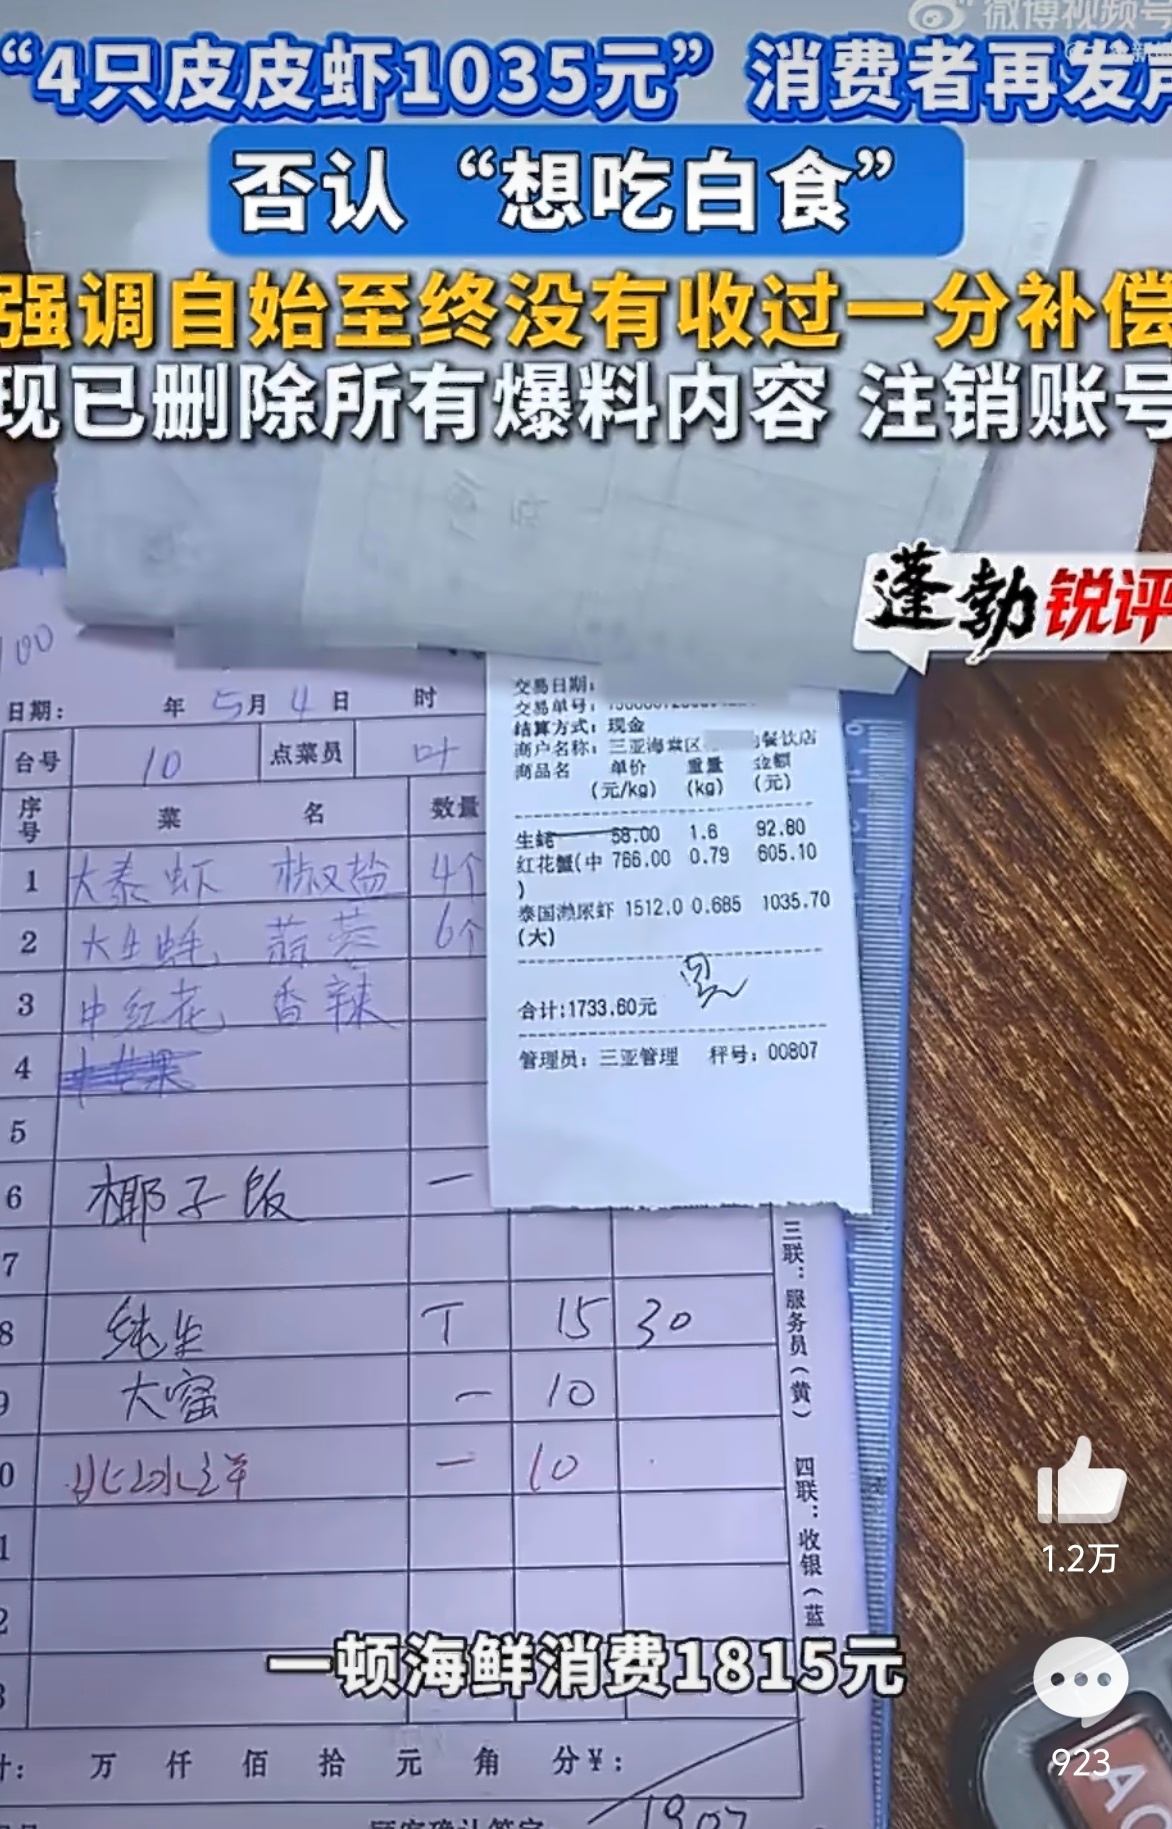 微博视频号
“4只皮皮虾1035元”消费者再发声
否认“想吃白食”
强调自始至终没有收过一分补偿
现已删除所有爆料内容 注销账号
蓬勃锐评
100
日期: 年 5月 4日 时
台号 10 点菜员 叶
序号 菜 名 数量
1 大泰虾 椒盐 4个
2 大生蚝 蒜蓉 6个
3 中红花 香辣
4
5
6 椰子饭 一
7
8 纯生 T 15 30
9 大窑 一 10
0 北冰洋 一 10
1
2
3
计: 万 仟 佰 拾 元 角 分¥:
1907
顾客确认签字
交易日期:
交易单号:
结算方式: 现金
商户名称: 三亚海棠区 餐饮店
商品名 单价 重量 金额
(元/kg) (kg) (元)
生蚝 58.00 1.6 92.80
红花蟹(中 766.00 0.79 605.10
)
泰国濑尿虾 1512.0 0.685 1035.70
(大)
合计:1733.60元
管理员: 三亚管理 秤号: 00807
三联:服务员(黄)
四联:收银(蓝
一顿海鲜消费1815元
1.2万
923
AC